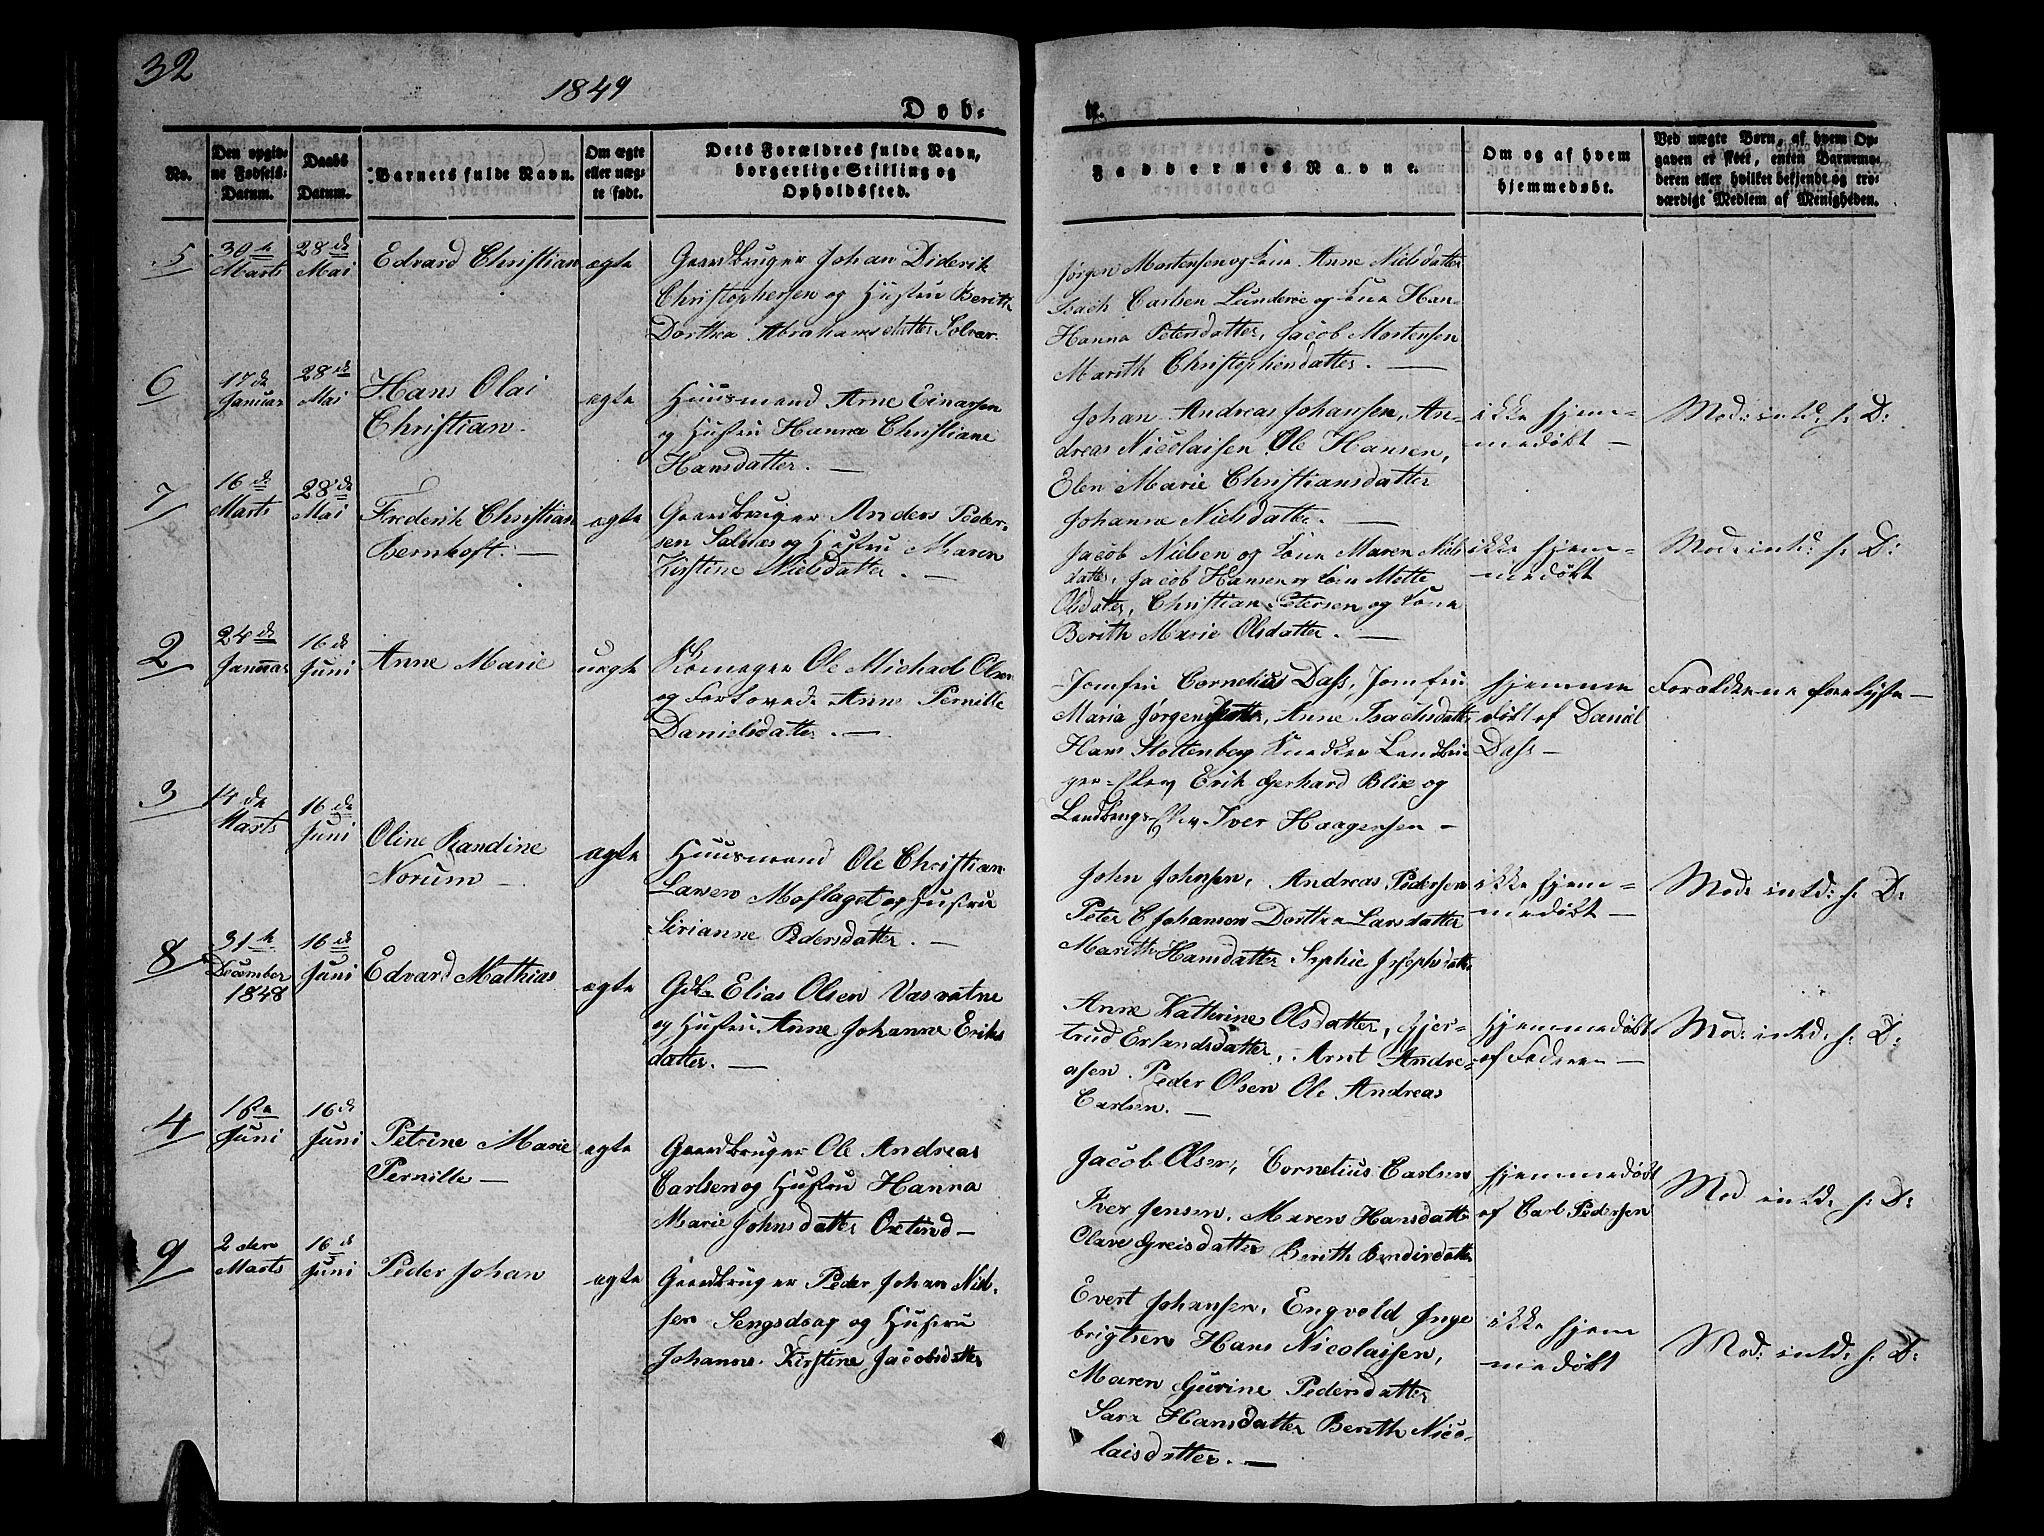 32
1849
Døb-
te.
No.
Den opgiv-
ne Fødsels-
Datum.
Daabs
Datum.
Barnets fulde Navn.
Om ægte
eller uæg-
te født.
Dets Forældres fulde Navn,
borgerlige Stilling og
Opholdssted.
Faddernes Navne.
Om og af hvem
hjemmedøbt.
Ved uægte Børn, af hvem Op-
gaven er skeet, enten Barnemo-
deren eller hvilket bekjendt og tro-
værdigt Medlem af Menigheden.
5
30te
Marts
28de
Mai
Edvard Christian
ægte
Gaardbruger Johan Diderik
Christophersen og Hustru Berith
Dorthea Abrahamsdatter Solvær
Jørgen Mortensen og Kone Anne Nielsdatter
Isach Carlsen Lunderøe og Kone Han-
Hanna Petersdatter, Jacob Mortensen
Marith Christophersdatter. —
6
17de
Januar
28de
Mai
Hans Olai
Christian
ægte
Huusmand Arne Einarsen
og Hustru Hanna Christiane
Hansdatter. —
Johan Andreas Johansen, An-
dreas Nicolaisen Ole Hansen,
Elen Marie Christiansdatter
Johanne Nielsdatter. —
ikke hjem-
medøbt —
Mod: intd: h: D:
7
16de
Marts
28de
Mai
Frederik Christian
Bernhoft. —
ægte
Gaardbruger Anders Peder-
sen og Hustru Maren
Kirstine Nielsdatter. —
Jacob Nilsen og Kone Maren Niels
datter, Jacob Hansen og Kone Mette
Olsdatter, Christian Petersen og Kone
Berith Marie Olsdatter. —
ikke hjem-
medøbt
Mod: intd: h: D:
2
24de
Januar
16de
Juni
Anne Marie
uægte
Ole Michael Olsen
og Forlovede Anne Pernille
Danielsdatter. —
Jomfru Cornelius Dass, Jomfru
Maria Jørgensdatter, Anne Isachsdatter
Hans Stoltenberg
Erik Gerhard Blix og
Iver Haagensen —
hjemme
døbt af Daniel
Dass —
Forældrene
3
14de
Marts
16de
Juni
Oline Randine
Norum —
ægte
Huusmand Ole Christian
Larsen Moflaget og Hustru
Sirianne Pedersdatter. —
John Johnsen, Andreas Pedersen
Peter C Johansen Dorthea Larsdatter
Marith Hansdatter Sophie Josephsdatter
ikke hjem-
medøbt —
Mod: intd: h: D:
8
31te
December
1848
16de
Juni
Edvard Mathias
ægte
Gdb: Elias Olsen Vasvatne
og Hustru Anne Johanne Eriks
datter. —
Anne Kathrine Olsdatter, Gjer-
trud Erlandsdatter, Arnt Andre-
asen. Peder Olsen Ole Andreas
Carlsen. —
hjemmedøbt
af Faderen —
Mod: intd: h: D:
4
Juni
16de
Juni
Petrine Marie
Pernille —
ægte
Gaardbruger Ole Andreas
Carlsen og Hustru Hanna
Marie Johnsdatter Oxtind —
Jacob Olsen, Cornelius Carlsen
Iver Jensen, Maren Hansdatter
Berith
hjemmedøbt
af Carl Pedersen
Mod intd: h: D:
9
2den
Marts
16de
Juni
Peder Johan
ægte
Gaardbruger Peder Johan Niel-
sen og Hustru
Johanne Kirstine Jacobsdatter
Evert Johansen, Engvold Inge
brigtsen Hans Nicolaisen,
Maren Gurine Pedersdatter
Sara Hansdatter Berith Nico-
laisdatter. —
ikke hjem
medøbt
Mod: intd: h: D: